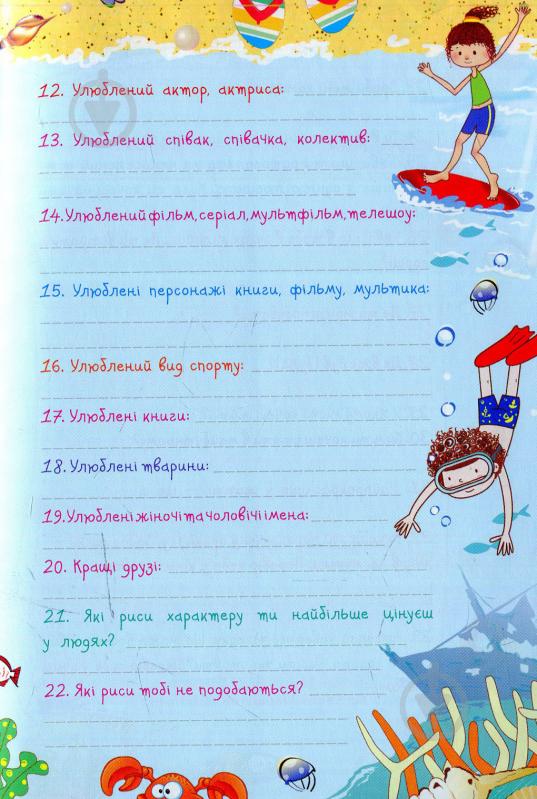 12. Улюблений актор, актриса:
13. Улюблений співак, співачка, колектив:
14. Улюблений фільм, серіал, мультфільм, телешоу:
15. Улюблені персонажі книги, фільму, мультика:
16. Улюблений вид спорту:
17. Улюблені книги:
18. Улюблені тварини:
19. Улюблені жіночі та чоловічі імена:
20. Кращі друзі:
21. Які риси характеру ти найбільше цінуєш
у людях?
22. Які риси тобі не подобаються?